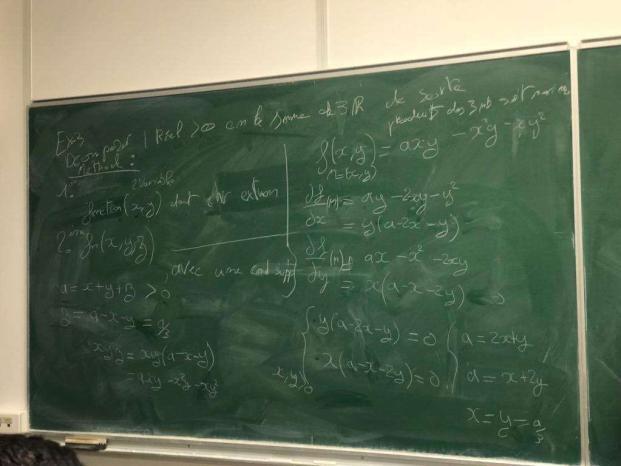 Exo
Décomposer 1 Réel > 0 en la somme de 3 ℝ de sorte
produit des 3 nb soit
Méthode :
1°
2 variables
fonction (x,y) dont chr extremum
2ème fn(x,y,z)
, avec une cond supp
a = x+y+z > 0
z = a-x-y = a/3
xyz = xy(a-x-y)
= axy - x²y - xy²
f(x,y) = axy - x²y - xy²
M=(x,y)
∂f/∂x (M) = ay - 2xy - y²
= y(a-2x-y)
∂f/∂y (M) = ax - x² - 2xy
= x(a-x-2y)
x,y>0 { y(a-2x-y) = 0 { a = 2x+y
x(a-x-2y) = 0 a = x+2y
x = y = a/3